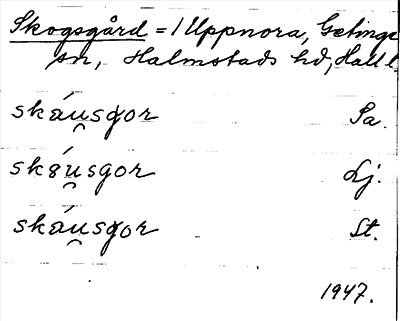 Skogsgård = 1 Uppnora, Getinge
sn, Halmstads hd, Hall l.
skáu̯sgor Sa.
sk8́u̯sgor Lj.
skáu̯sgor St.
1947.